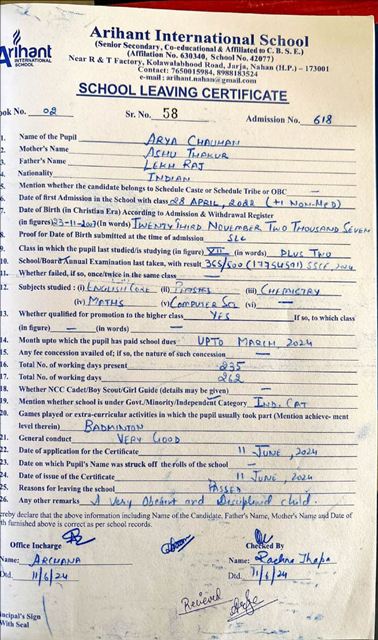 Arihant
INTERNATIONAL
SCHOOL
Arihant International School
(Senior Secondary, Co-educational & Affiliated to C. B. S. E.)
(Affilation No. 630340, School No. 42077)
Near R & T Factory, Kolawalabhood Road, Jarja, Nahan (H.P.) – 173001
Contact: 7650015984, 8988183524
e-mail : arihant.nahan@gmail.com
SCHOOL LEAVING CERTIFICATE
ook No. 02 Sr. No. 58 Admission No. 618
1. Name of the Pupil ARYA CHAUHAN
2. Mother's Name ASHU THAKUR
3. Father's Name LEKH RAJ
4. Nationality INDIAN
5. Mention whether the candidate belongs to Schedule Caste or Schedule Tribe or OBC —
6. Date of first Admission in the School with class 28 APRIL, 2022 (+1 NON-MED)
7. Date of Birth (in Christian Era) According to Admission & Withdrawal Register
(in figures) 23-11-2007 (In words) TWENTY THIRD NOVEMBER TWO THOUSAND SEVEN
8. Proof for Date of Birth submitted at the time of admission SLC
9. Class in which the pupil last studied/is studying (in figure) XII (in words) PLUS TWO
10. School/Board Annual Examination last taken, with result 365/500
11. Whether failed, if so, once/twice in the same class
12. Subjects studied : (i) ENGLISH CORE (ii) PHYSICS (iii) CHEMISTRY
(iv) MATHS (v) COMPUTER SCI (vi) —
13. Whether qualified for promotion to the higher class YES If so, to which class
(in figure) — (in words) —
14. Month upto which the pupil has paid school dues UPTO MARCH, 2024
15. Any fee concession availed of; if so, the nature of such concession —
16. Total No. of working days present 235
17. Total No. of working days 262
18. Whether NCC Cadet/Boy Scout/Girl Guide (details may be given) —
19. Mention whether school is under Govt./Minority/Independent Category IND. CAT
20. Games played or extra-curricular activities in which the pupil usually took part (Mention achieve- ment
level therein) BADMINTON
21. General conduct VERY GOOD
22. Date of application for the Certificate 11 JUNE, 2024
23. Date on which Pupil's Name was struck off the rolls of the school —
24. Date of issue of the Certificate 11 JUNE, 2024
25. Reasons for leaving the school PASSED
26. Any other remarks A Very Obedient and Disciplined child.
ereby declare that the above information including Name of the Candidate, Father's Name, Mother's Name and Date of
th furnished above is correct as per school records.
Office Incharge Checked By
Name: ARCHANA Name: Rachna Thapa
Dtd. 11/6/24 Dtd. 11/6/24
Recieved
incipal's Sign
With Seal